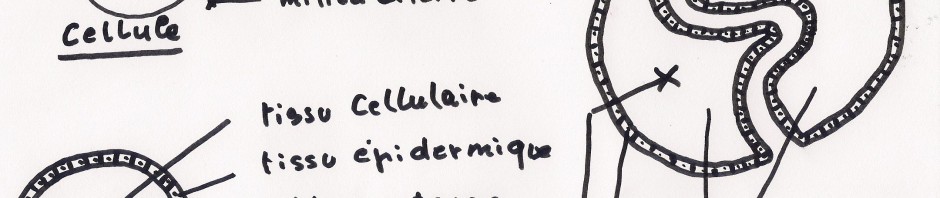 Cellule
tissu Cellulaire
tissu épidermique